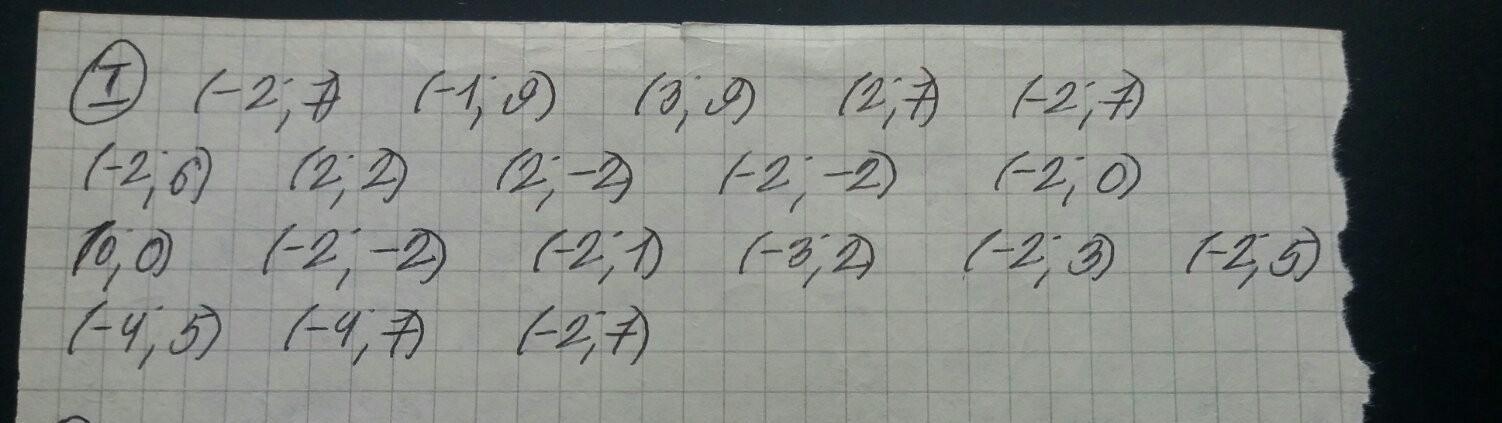 I (-2; 7) (-1; 9) (3; 9) (2; 7) (-2; 7)
(-2; 6) (2; 2) (2; -2) (-2; -2) (-2; 0)
(0; 0) (-2; -2) (-2; 1) (-3; 2) (-2; 3) (-2; 5)
(-4; 5) (-4; 7) (-2; 7)